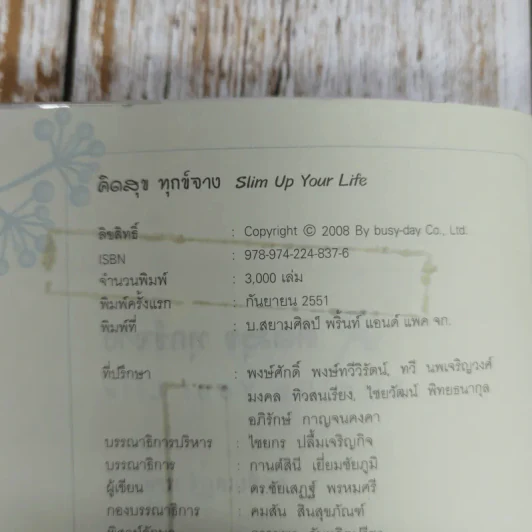 คิดสุข ทุกข์จาง Slim Up Your Life
ลิขสิทธิ์ : Copyright © 2008 By busy-day Co., Ltd.
ISBN : 978-974-224-837-6
จำนวนพิมพ์ : 3,000 เล่ม
พิมพ์ครั้งแรก : กันยายน 2551
พิมพ์ที่ : บ.สยามศิลป์ พริ้นท์ แอนด์ แพค จก.
ที่ปรึกษา : พงษ์ศักดิ์ พงษ์ทวีวิรัตน์, ทวี นพเจริญวงศ์
มงคล ทิวสนเรียง, ไชยวัฒน์ พิทยธนากุล
อภิรักษ์ กาญจนคงคา
บรรณาธิการบริหาร : ไชยกร ปลื้มเจริญกิจ
บรรณาธิการ : กานต์สินี เยี่ยมชัยภูมิ
ผู้เขียน : ดร.ชัยเสฏฐ์ พรหมศรี
กองบรรณาธิการ : คมสัน สินสุขภัณฑ์